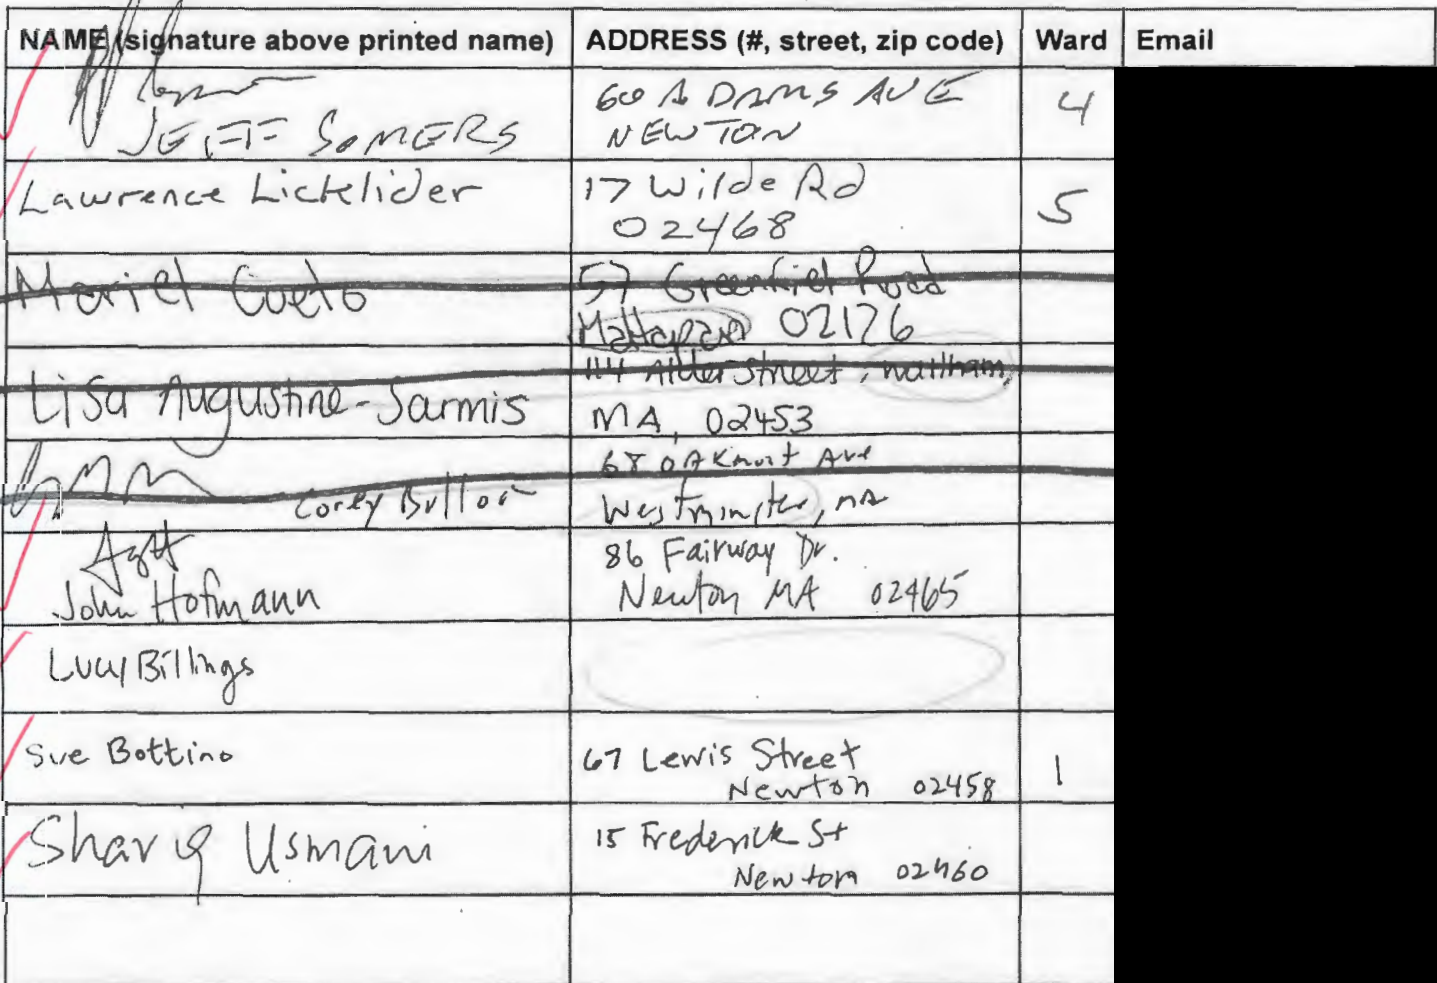 NAME (signature above printed name) ADDRESS (#, street, zip code) Ward Email
JEFF SOMERS
60 ADAMS AVE
NEWTON
4
Lawrence Lickelider
17 Wilde Rd
02468
5
Mariel Cueto
57 Greenfiel Road
Mattapan 02126
Lisa Augustine-Jarmis
114 Alder Street, Waltham,
MA, 02453
Corey
68 OAKmont Ave
Westminster, MA
John Hofmann
86 Fairway Dr.
Newton MA 02465
Lucy Billings
Sue Bottino
67 Lewis Street
Newton 02458
1
Shariq Usmani
15 Frederick St
Newton 02460